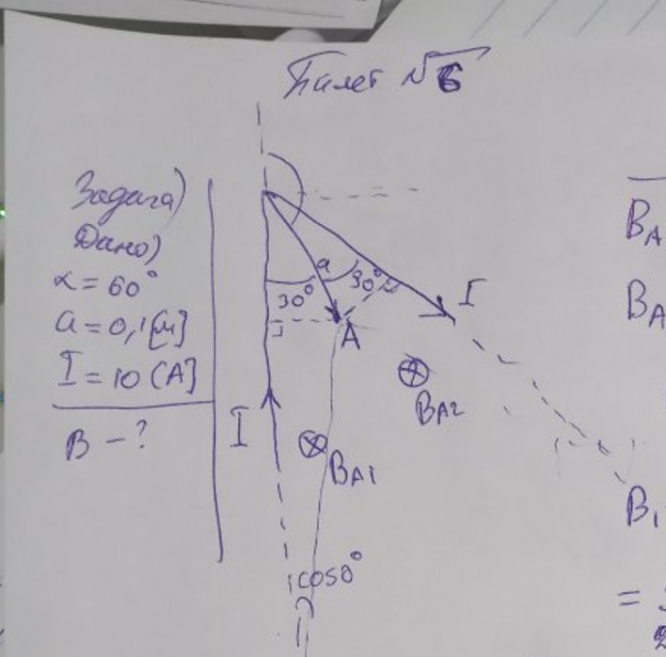 Билет №6
Задача)
Дано)
α = 60°
a = 0,1 [м]
I = 10 (А)
B - ?
I
30°
a
30°
I
A
⊗
B_A2
⊗
B_A1
cos0°
B_A
B_A
B_1
=